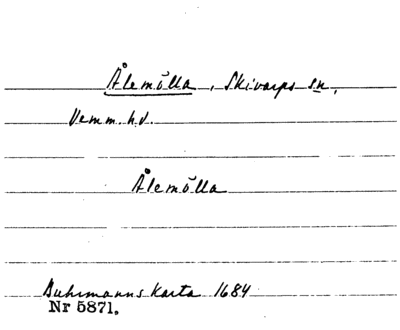 Ålemölla, Skivarps sn,
Vemm. hd.
Ålemölla
Buhrmanns Karta 1684
Nr 5871.